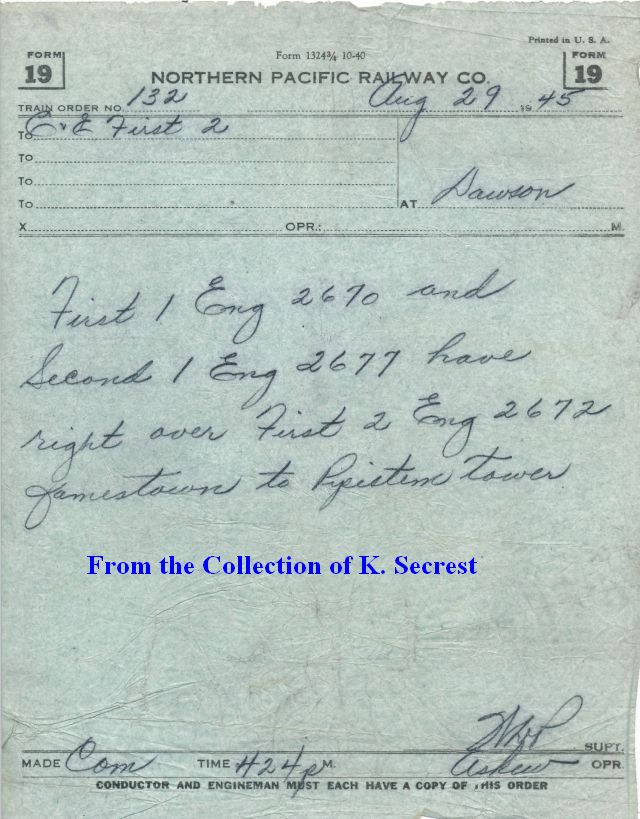 Printed in U. S. A.
FORM 19
Form 1324¾ 10-40
FORM 19
NORTHERN PACIFIC RAILWAY CO.
TRAIN ORDER NO. 132 Aug 29 1945
To C & E First 2
To
To
To AT Dawson
X OPR.: M.
First 1 Eng 2670 and
Second 1 Eng 2677 have
right over First 2 Eng 2672
Jamestown to Pipistem tower
From the Collection of K. Secrest
SUPT.
MADE Com TIME 424p M. Askew OPR.
CONDUCTOR AND ENGINEMAN MUST EACH HAVE A COPY OF THIS ORDER